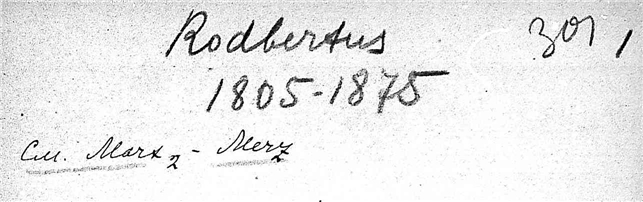 Rodbertus 301,
1805-1875
См. Marx 2 - Merz